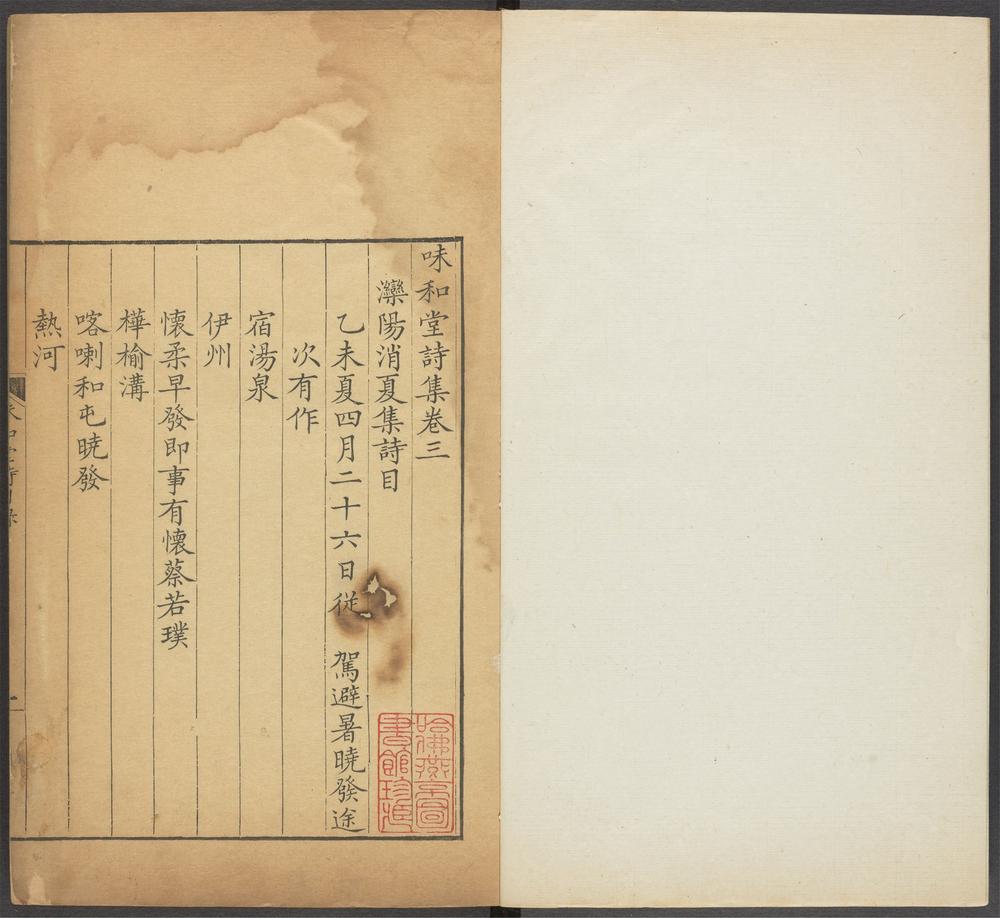 味和堂詩集卷三
灤陽消夏集詩目
乙未夏四月二十六日從 駕避暑曉發途
次有作
宿湯泉
伊州
懷柔早發即事有懷蔡若璞
樺榆溝
喀喇和屯曉發
熱河
哈佛燕京圖
書館珍藏